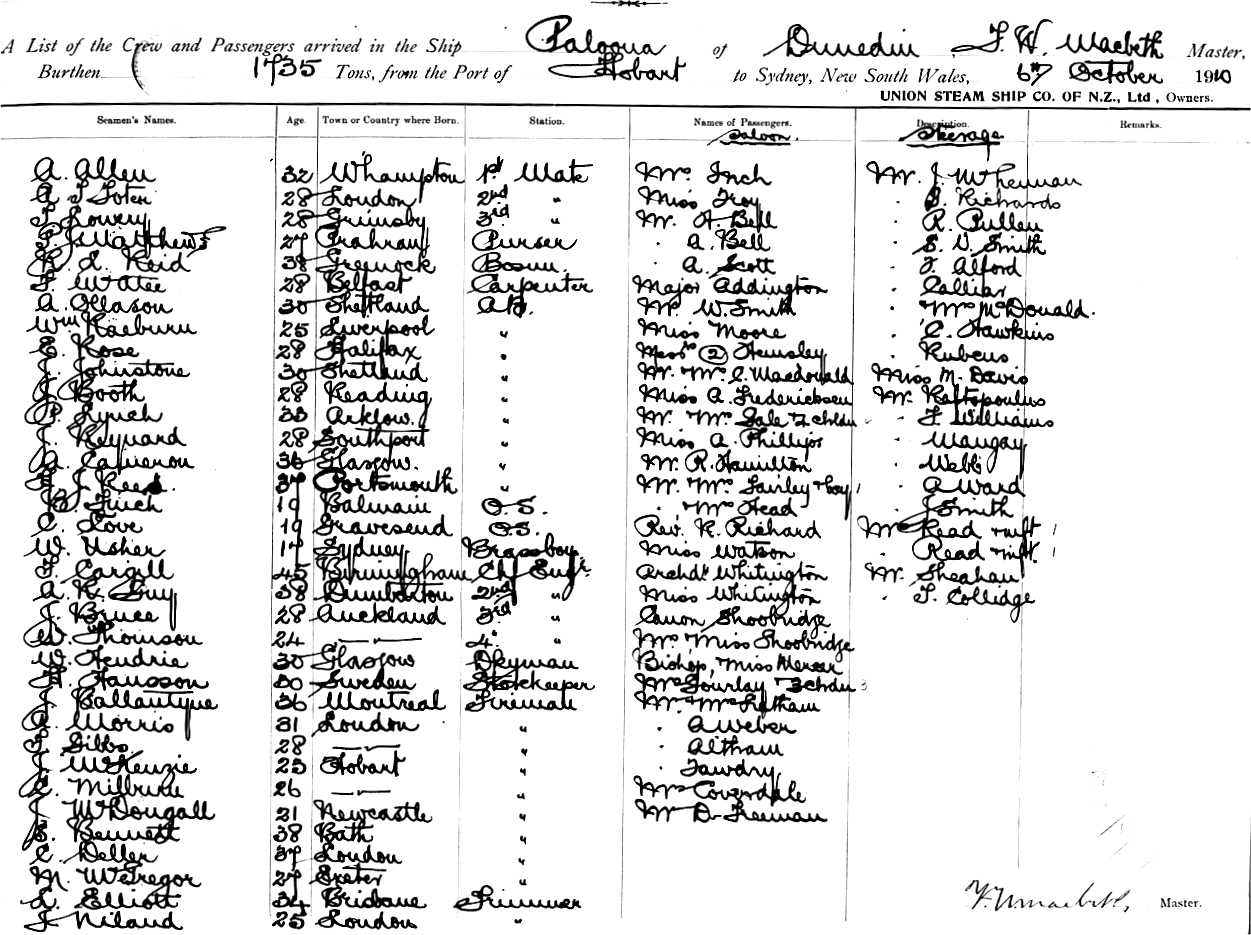 A List of the Crew and Passengers arrived in the Ship Paloona of Dunedin F. W. Macbeth Master,
Burthen 1735 Tons, from the Port of Hobart to Sydney, New South Wales, 6th October 1910
UNION STEAM SHIP CO. OF N.Z., Ltd, Owners.
Seamen's Names. Age. Town or Country where Born. Station. Names of Passengers. Description. Remarks.
Saloon. Steerage
A. Allen 32 Whampton 1st Mate Mrs Inch Mr. J.
28 London 2nd " Miss Troy . Richards
Lowery 28 Grimsby 3rd " Mr. A. Bell . R. Pullen
Matthews 27 Prahran Purser . A. Bell . E. V. Smith
R. L. Reid 38 Greenock Bosun . A. Scott . J. Alford
McAtee 28 Belfast Carpenter Major Addington .
A. Ollason 30 Shetland A.B. Mr. W. Smith . Mrs McDonald.
Wm Raeburn 25 Liverpool " Miss Moore . C. Hawkins
E. Rose 28 Halifax " (2) Hemsley . Rubens
J. Johnstone 30 Shetland " Mr. Mrs C. Macdonald Miss M. Davis
J. Booth 28 Reading " Miss A. Fredericksen Mr. Raftopoulus
P. Lynch 33 Arklow. " Mr. Mrs Gale & 2 chldn . F. Williams
J. Reynard 28 Southport " Miss A. Phillips . Maugay
A. Cameron 36 Glasgow. " Mr. R. Hamilton . Webb
J. Reed. 37 Portsmouth " Mr. Mrs Fairley & boy 1 . A Ward
Finch 19 Balmain O.S. . Mrs Head . J Smith
C. Love 19 Gravesend O.S. Rev. R. Richard Mrs Read & inft 1
W. Usher 17 Sydney Brassboy Miss Watson . Read & inft. 1
F. Cargill 45 Birmingham Chf Engr. Archdn Whitington Mr. Sheahan
A. R. Guy 38 Dumbarton 2nd " Miss Whitington . T. Collidge
J. Bruce 28 Auckland 3rd " Canon Shoobridge
W. Thomson 24 — " — 4. " Mrs Miss Shoobridge
W. Hendrie 30 Glasgow Dkyman Bishop, Miss Mercer
H. Hansson 30 Sweden Storekeeper Mrs Gourlay 3 chdn 3
J. Ballantyne 36 Montreal Fireman Mr. Mrs Latham
A. Morris 31 London " . A Weber
F. Gibbs 28 — " — " . Altham
J. McKenzie 23 Hobart " . Tawdry
C. Milburn 26 — " — " Mrs Coverdale
J. McDougall 21 Newcastle " Mr D. Freeman
E. Bennett 38 Bath "
C. Deller 37 London "
M. McGregor 27 Exeter "
L. Elliott 34 Brisbane Trimmer
J. Niland 25 London "
F. W. Macbeth, Master.